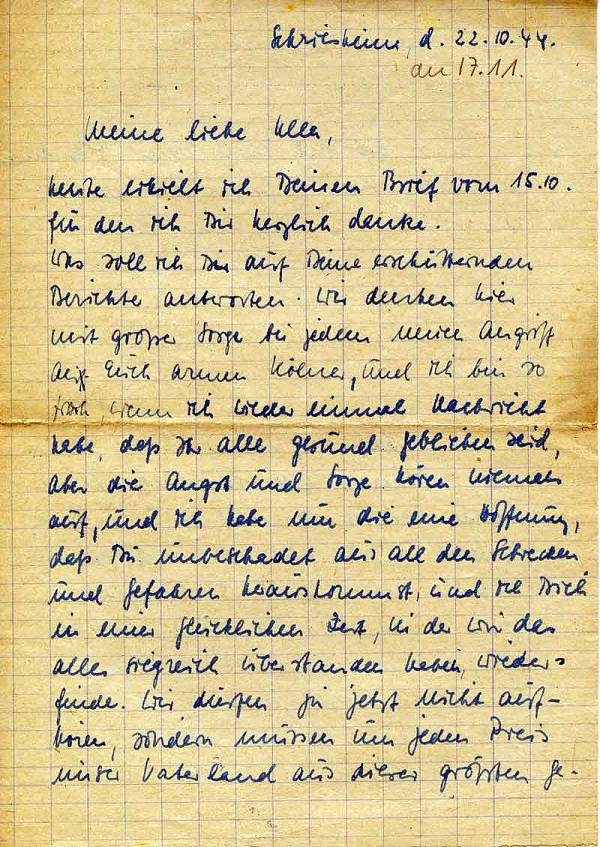 Schriesheim, d. 22.10.44.
an 17.11.
Meine liebe Ulla,
heute erhielt ich Deinen Brief vom 15.10.
für den ich Dir herzlich danke.
Was soll ich Dir auf Deine erschütternden
Berichte antworten. Wir denken hier
mit großer Sorge bei jedem neuen Angriff
auf Euch armen Kölner, und ich bin so
froh, wenn ich wieder einmal Nachricht
habe, daß Ihr alle gesund geblieben seid,
aber die Angst und Sorge hören niemals
auf, und ich habe nur die eine Hoffnung,
daß Du unbeschadet aus all den Schrecken
und Gefahren herauskommst, und ich Dich
in einer glücklichen Zeit, in der wir das
alles siegreich überstanden haben, wieder=
finde. Wir dürfen ja jetzt nicht auf-
hören, sondern müssen um jeden Preis
unser Vaterland aus dieser größten Ge-